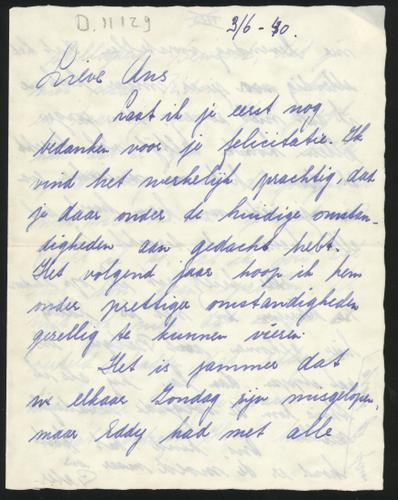 D. 11129
3/6 - 40.
Lieve Ans
Laat ik je eerst nog
bedanken voor je felicitatie. Ik
vind het werkelijk prachtig, dat
je daar onder de huidige omstan-
digheden aan gedacht hebt.
Het volgend jaar hoop ik hem
onder prettige omstandigheden
gezellig te kunnen vieren.
Het is jammer dat
we elkaar Zondag zijn misgelopen,
maar Eddy had met alle